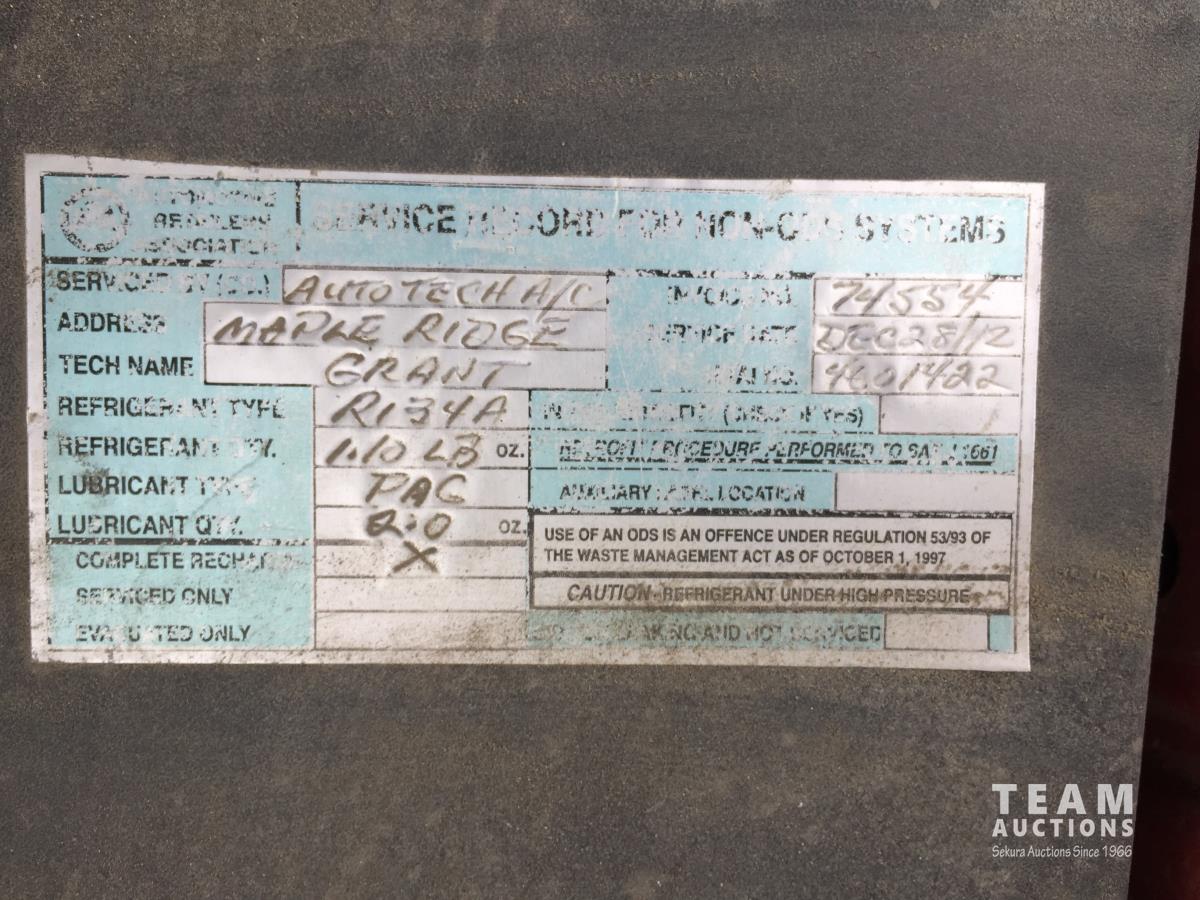 RETAILERS
ASSOCIATION
SERVICE RECORD FOR NON-ODS SYSTEMS
SERVICED BY AUTOTECH A/C
INVOICE NO. 74554
ADDRESS MAPLE RIDGE
SERVICE DATE DEC 28/12
TECH NAME GRANT
4601422
REFRIGERANT TYPE R134A
(CHECK IF YES)
REFRIGERANT QTY. 1.10 LB OZ.
RETROFIT PROCEDURE PERFORMED TO SAE J1661
LUBRICANT TYPE PAG
AUXILIARY LABEL LOCATION
LUBRICANT QTY. 2.0 OZ.
USE OF AN ODS IS AN OFFENCE UNDER REGULATION 53/93 OF
THE WASTE MANAGEMENT ACT AS OF OCTOBER 1, 1997
COMPLETE RECHARGE X
SERVICED ONLY
CAUTION - REFRIGERANT UNDER HIGH PRESSURE
EVACUATED ONLY
LEAKING AND NOT SERVICED
TEAM
AUCTIONS
Sekura Auctions Since 1966